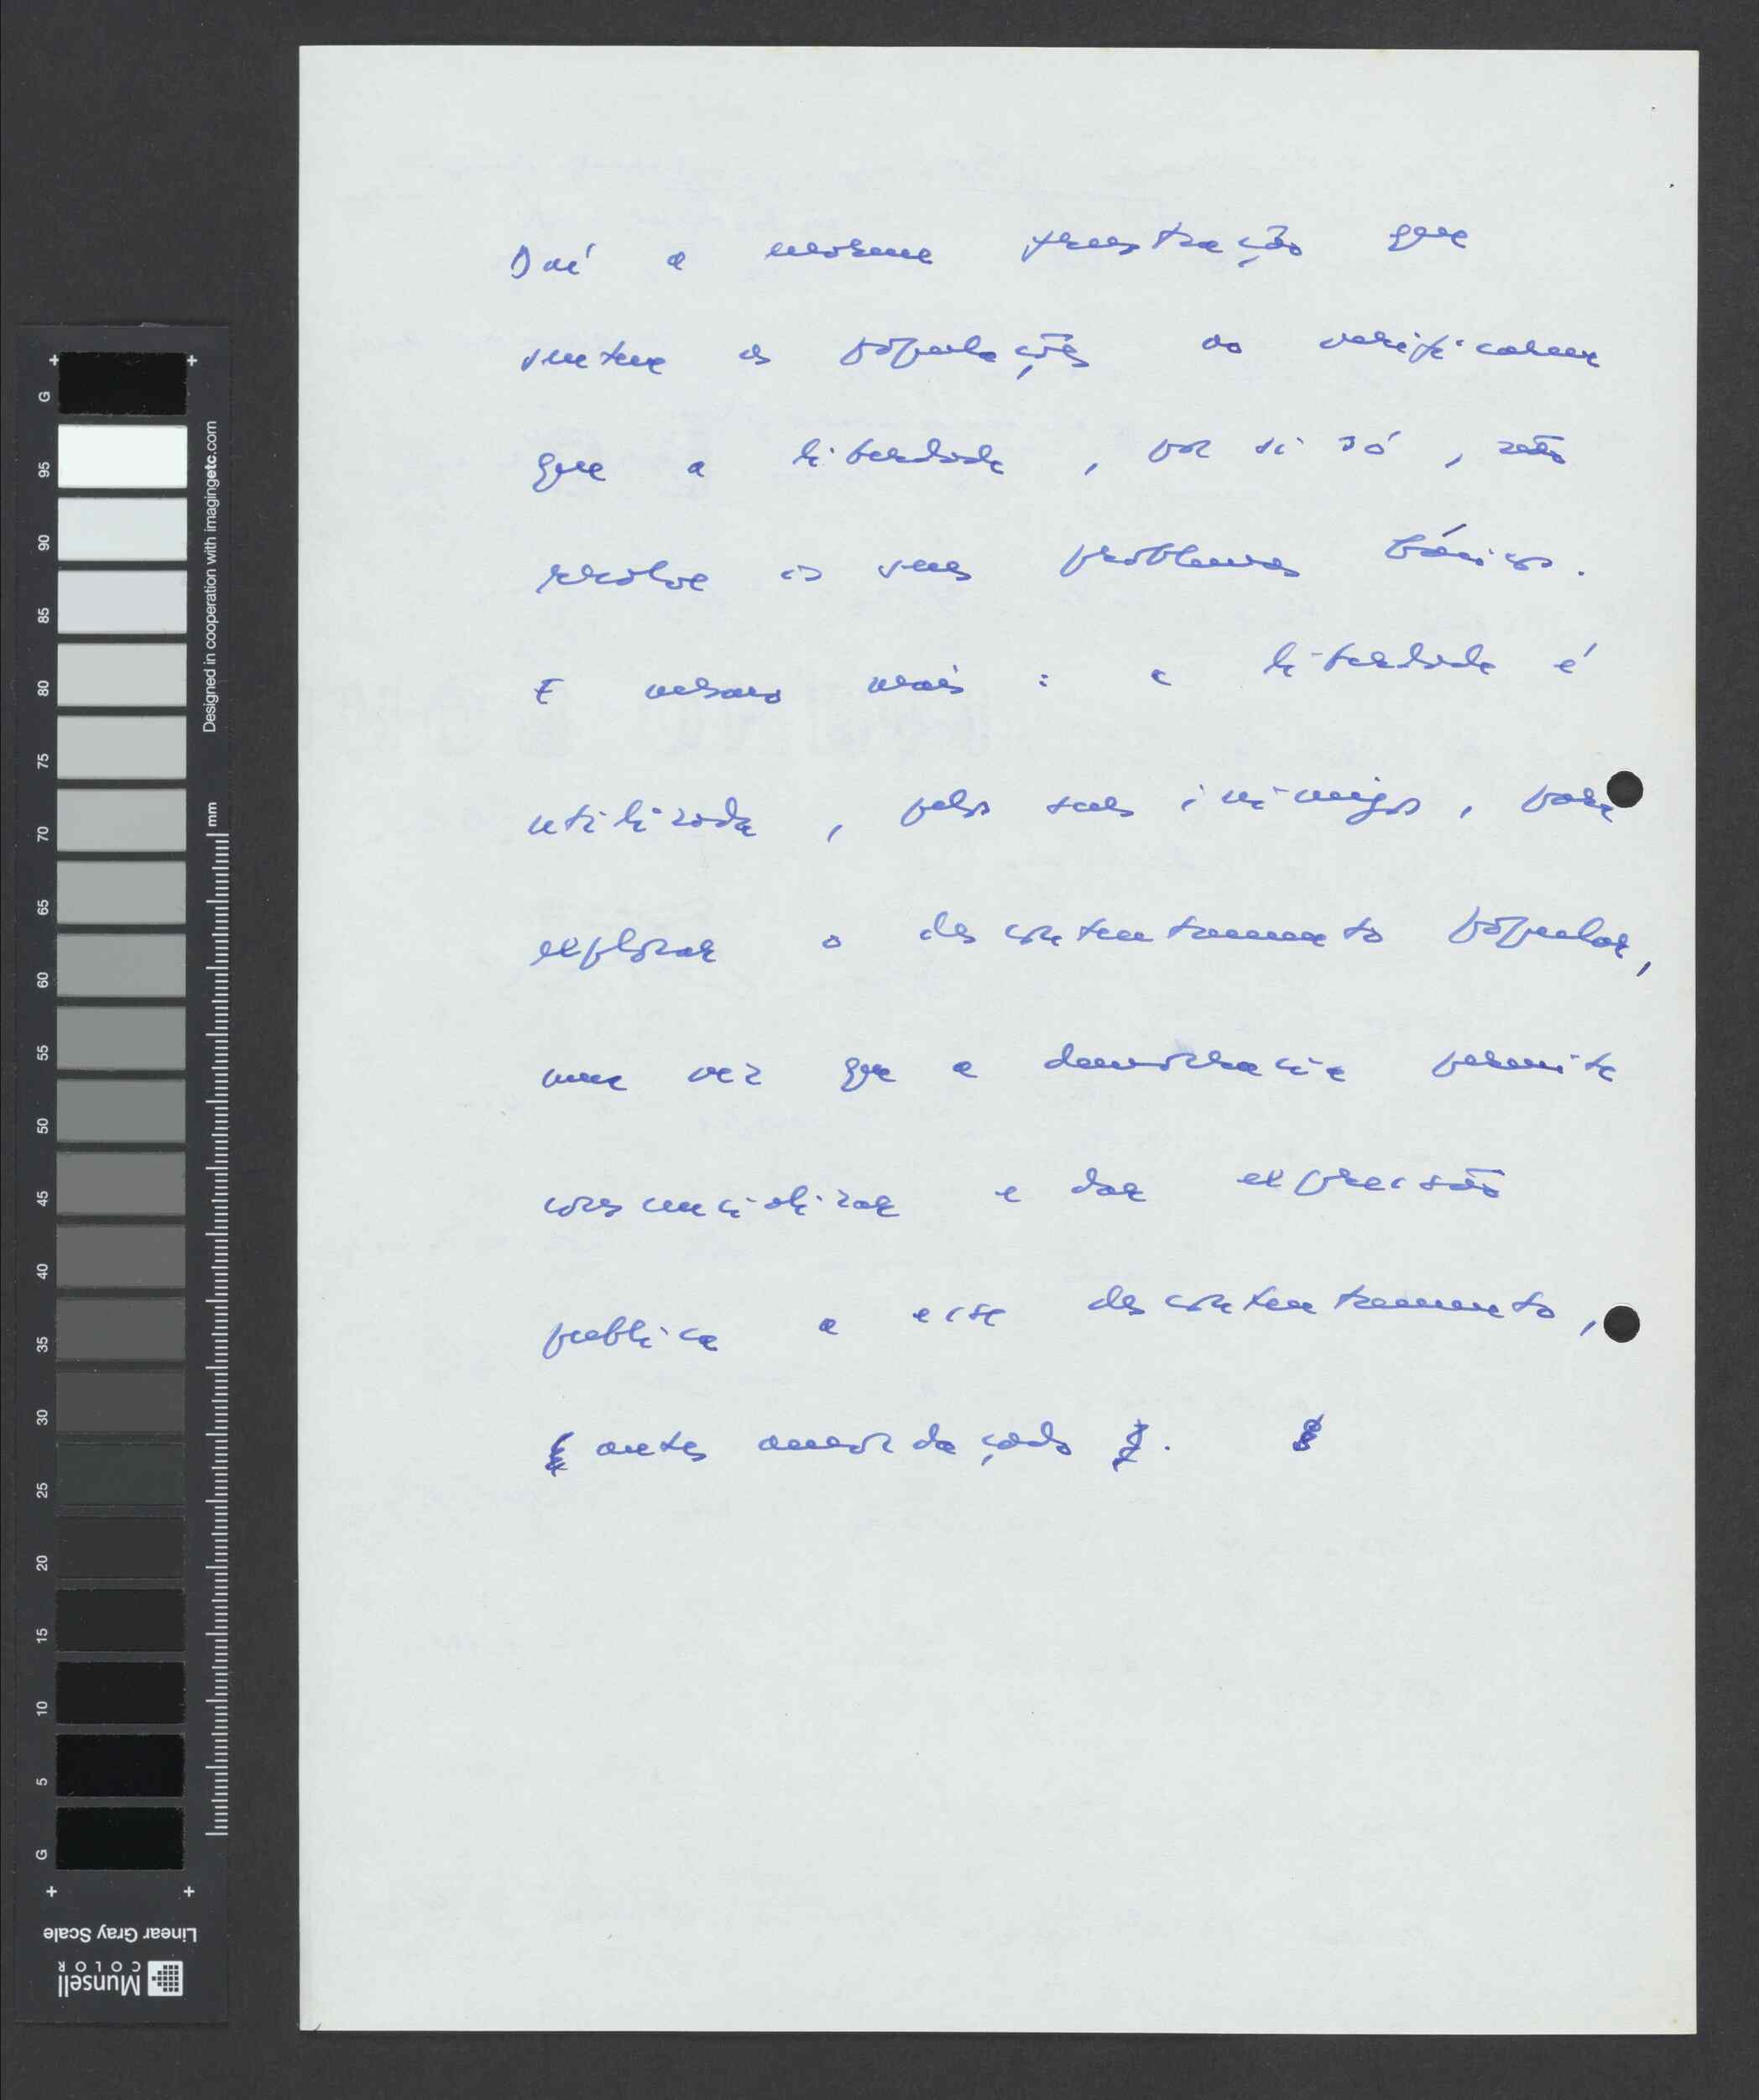 Daí a enorme frustração que
sentem as populações ao verificarem
que a liberdade, por si só, não
resolve os seus problemas básicos.
E mesmo mais: a liberdade é
utilizada, pelos seus inimigos, para
explorar o descontentamento popular,
uma vez que a democracia permite
consciencializar e dar expressão
pública a esse descontentamento,
antes amordaçado.
G 95 90 85 80 75 70 65 60 55 50 45 40 35 30 25 20 15 10 5 G
Designed in cooperation with imagingetc.com
mm
Linear Gray Scale
Munsell
COLOR